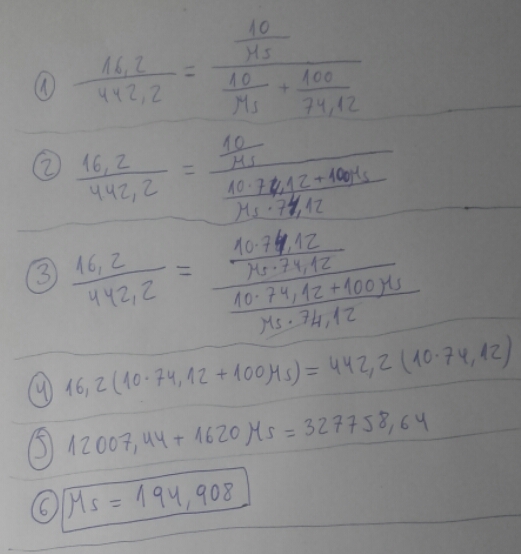 ① 16,2/442,2 = (10/Ms)/(10/Ms + 100/74,12)
② 16,2/442,2 = (10/Ms)/((10·74,12+100Ms)/(Ms·74,12))
③ 16,2/442,2 = ((10·74,12)/(Ms·74,12))/((10·74,12+100Ms)/(Ms·74,12))
④ 16,2(10·74,12+100Ms) = 442,2(10·74,12)
⑤ 12007,44 + 1620Ms = 327758,64
⑥ Ms = 194,908